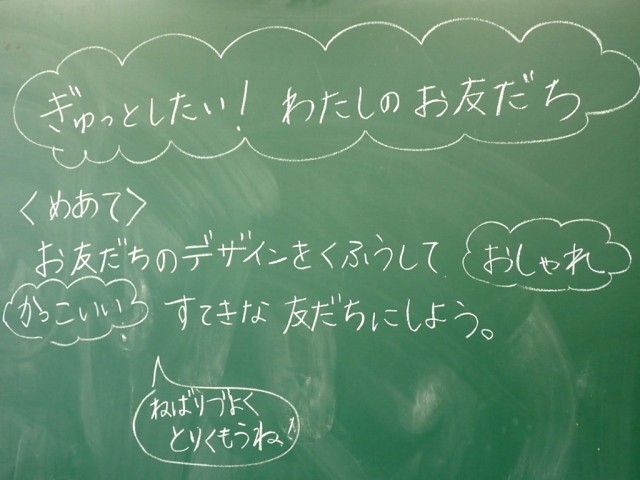 ぎゅっとしたい! わたしのお友だち
〈めあて〉
お友だちのデザインをくふうして おしゃれ
かっこいい すてきな友だちにしよう。
ねばりづよく
とりくもうね!